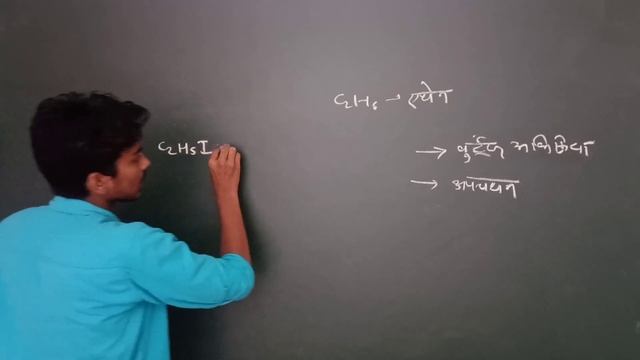 C₂H₆ → एथेन
C₂H₅I
→ वुर्ट्ज अभिक्रिया
→ अपचयन